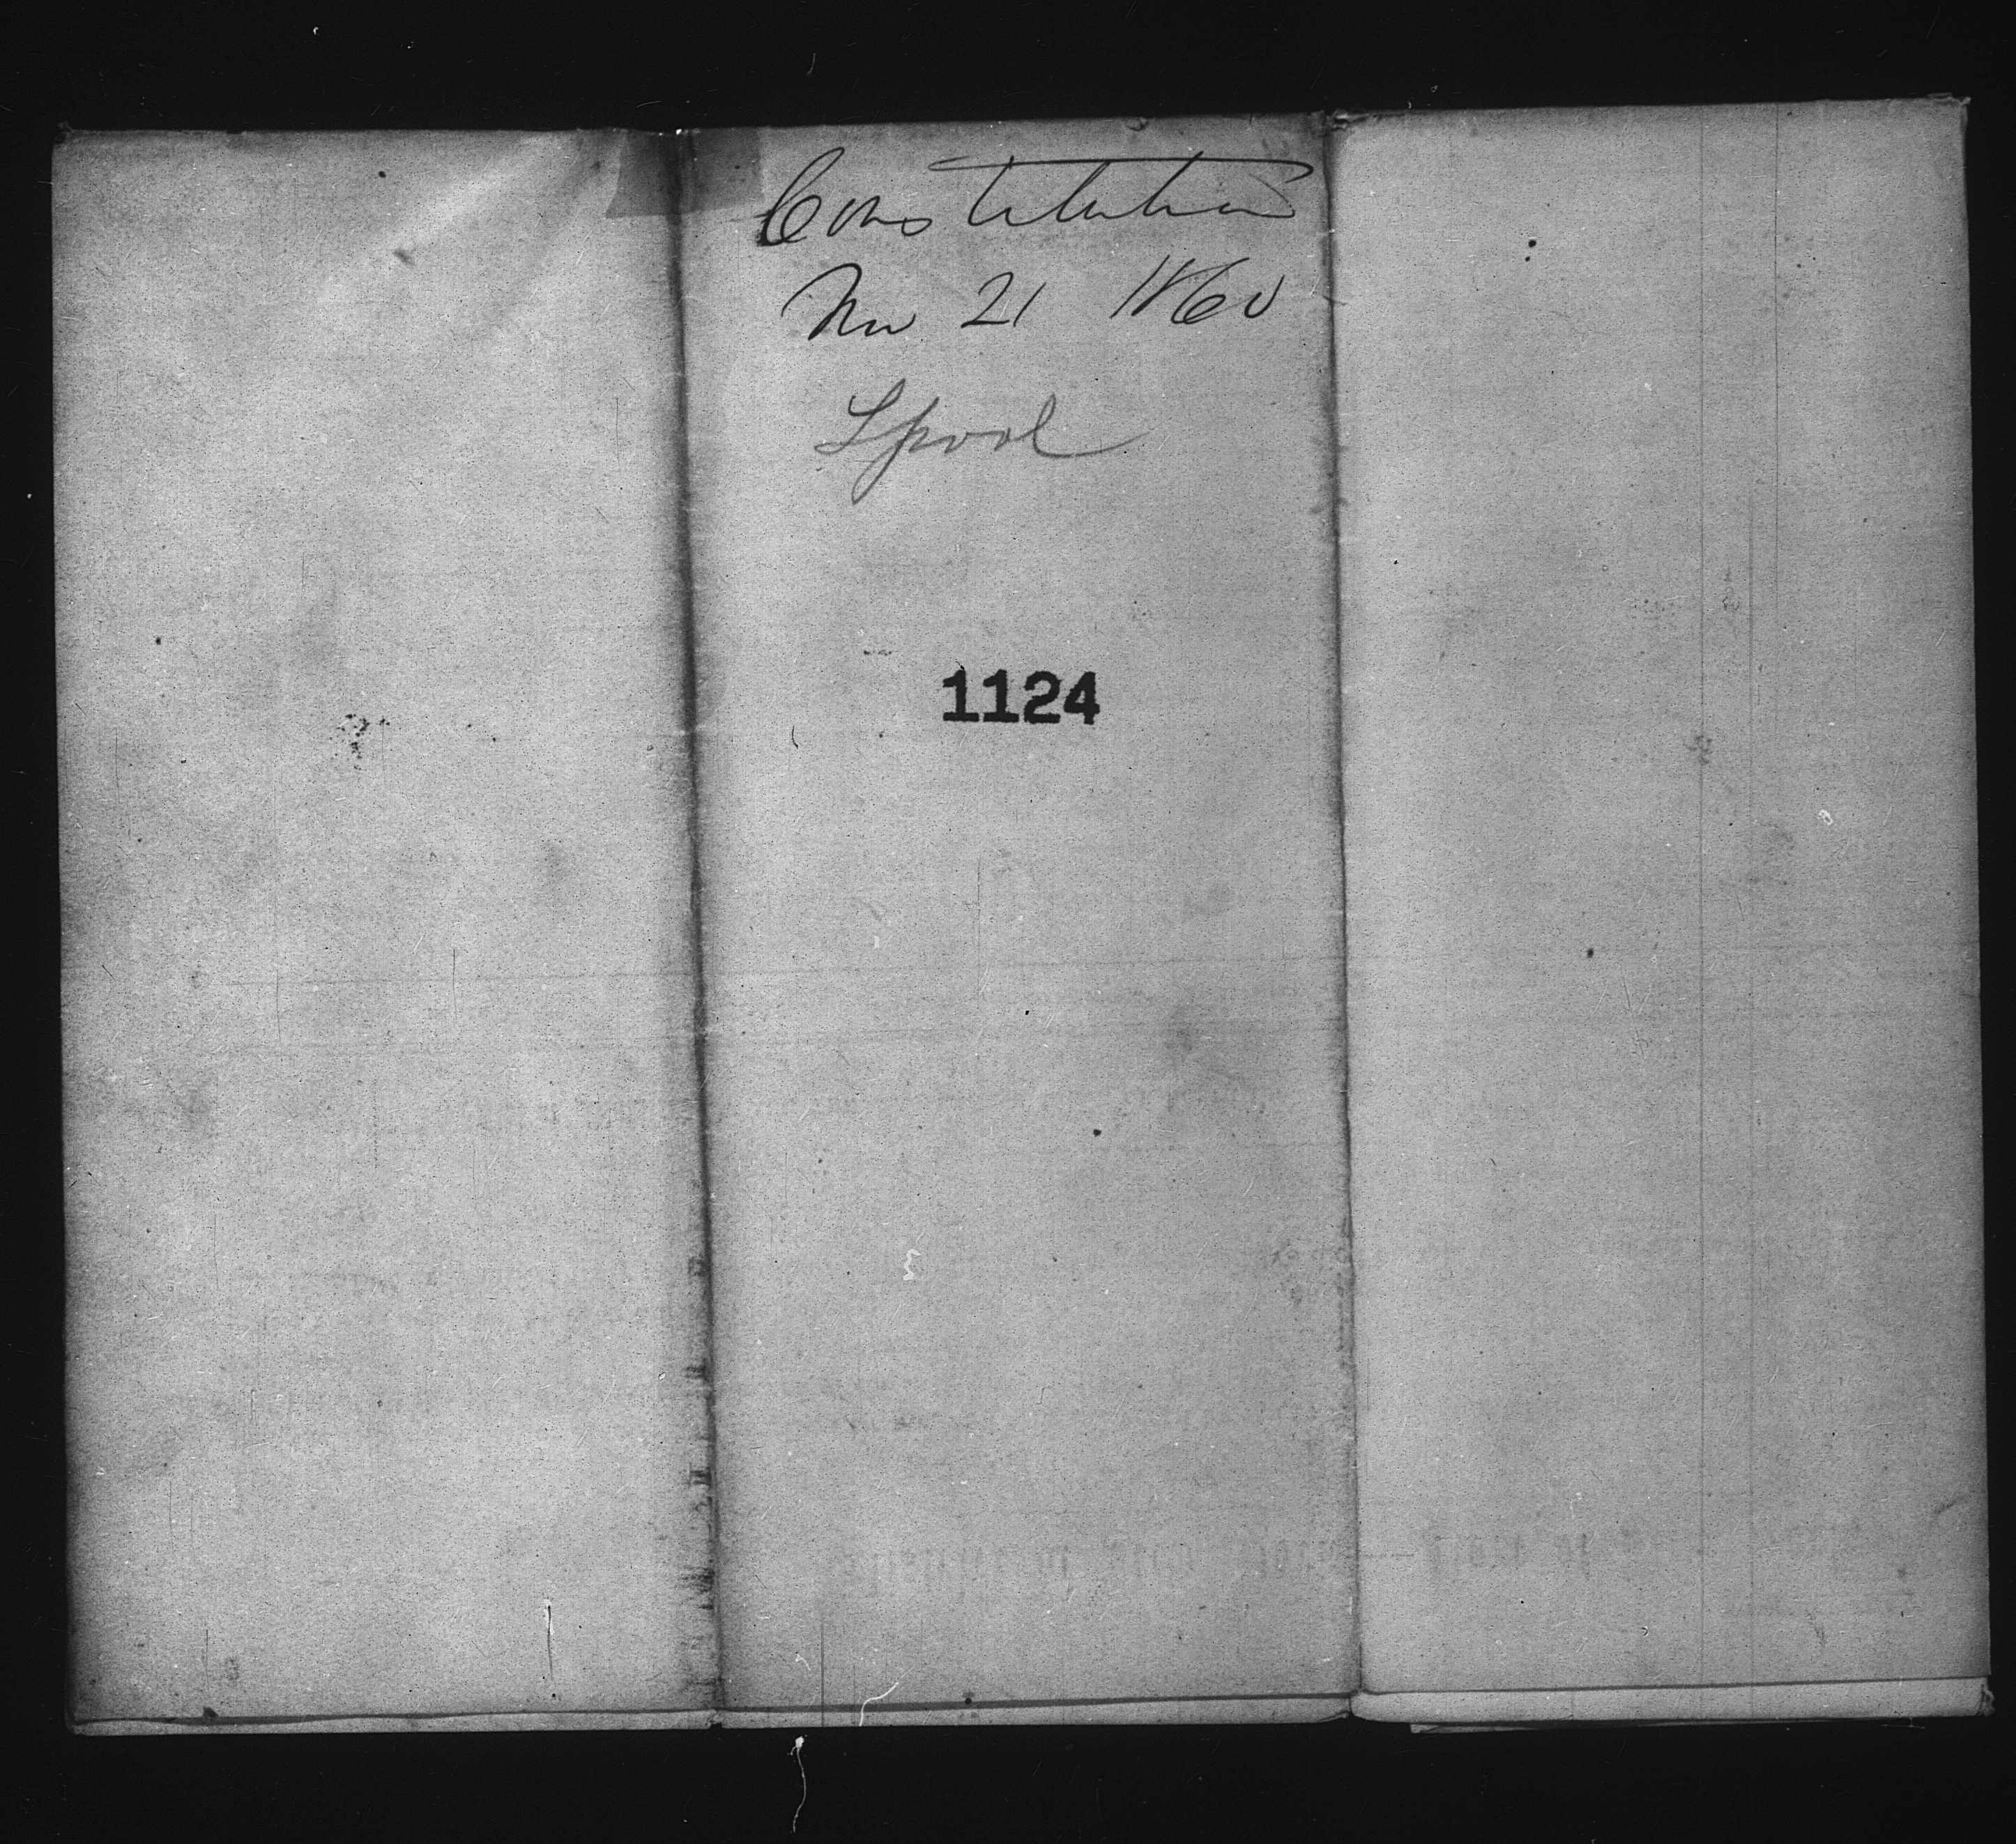 Constitution
Nov 21 1860
Lpool
1124